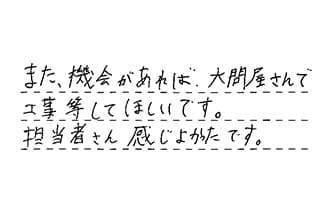 また、機会があれば、大問屋さんで
工事等してほしいです。
担当者さん 感じよかったです。